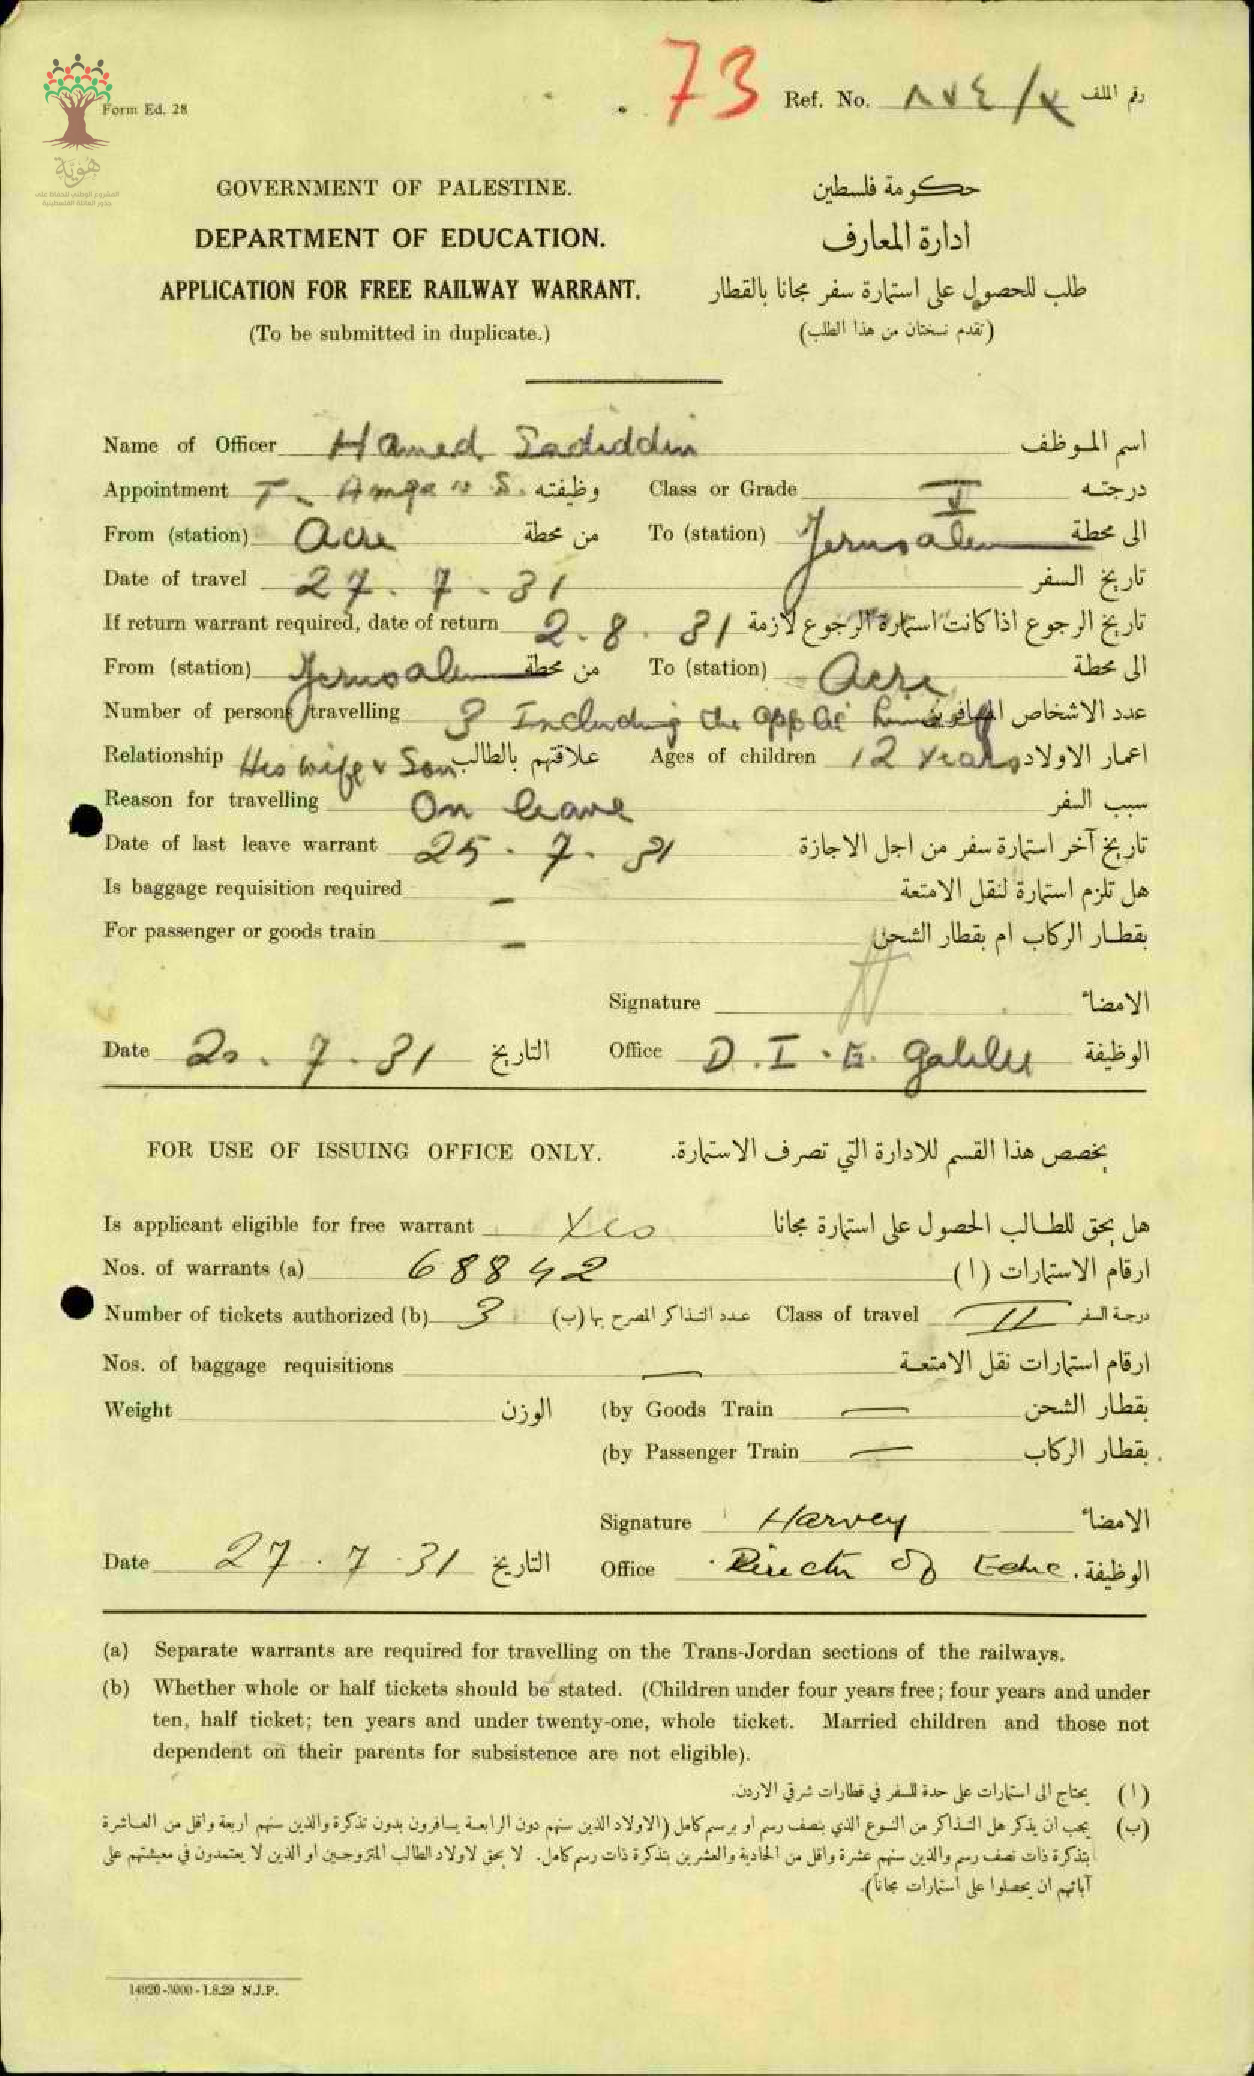 73
Form Ed. 28
Ref. No. ٨٧٤/ رقم الملف
هُوِيَّة
المشروع الوطني للحفاظ على
جذور العائلة الفلسطينية
GOVERNMENT OF PALESTINE. حكومة فلسطين
DEPARTMENT OF EDUCATION. ادارة المعارف
APPLICATION FOR FREE RAILWAY WARRANT. طلب للحصول على استمارة سفر مجانا بالقطار
(To be submitted in duplicate.) (تقدم نسختان من هذا الطلب)
Name of Officer Hamed Sadiddin اسم الموظف
Appointment T. Amqa S. وظيفته Class or Grade V درجته
From (station) Acre من محطة To (station) Jerusalem الى محطة
Date of travel 27. 7. 31 تاريخ السفر
If return warrant required, date of return 2. 8. 31 تاريخ الرجوع اذا كانت استمارة الرجوع لازمة
From (station) Jerusalem من محطة To (station) Acre الى محطة
Number of persons travelling 3 Including the himself عدد الاشخاص المسافرين
Relationship His wife & Son علاقتهم بالطالب Ages of children 12 years اعمار الاولاد
Reason for travelling On leave سبب السفر
Date of last leave warrant 25. 7. 31 تاريخ آخر استمارة سفر من اجل الاجازة
Is baggage requisition required - هل تلزم استمارة لنقل الامتعة
For passenger or goods train - بقطار الركاب ام بقطار الشحن
Signature الامضاء
Date 20. 7. 31 التاريخ Office D. I. E. Galilee الوظيفة
FOR USE OF ISSUING OFFICE ONLY. يخصص هذا القسم للادارة التي تصرف الاستمارة.
Is applicant eligible for free warrant Yes هل يحق للطالب الحصول على استمارة مجانا
Nos. of warrants (a) 68842 ارقام الاستمارات (ا)
Number of tickets authorized (b) 3 عدد التذاكر المصرح بها (ب) Class of travel II درجة السفر
Nos. of baggage requisitions — ارقام استمارات نقل الامتعة
Weight الوزن (by Goods Train — بقطار الشحن
(by Passenger Train — بقطار الركاب
Signature Harvey الامضاء
Date 27. 7. 31 التاريخ Office Director of Educ. الوظيفة
(a) Separate warrants are required for travelling on the Trans-Jordan sections of the railways.
(b) Whether whole or half tickets should be stated. (Children under four years free; four years and under
ten, half ticket; ten years and under twenty-one, whole ticket. Married children and those not
dependent on their parents for subsistence are not eligible).
(ا) يحتاج الى استمارات على حدة للسفر في قطارات شرقي الاردن.
(ب) يجب ان يذكر هل التذاكر من النوع الذي بنصف رسم او برسم كامل (الاولاد الذين سنهم دون الرابعة يسافرون بدون تذكرة والذين سنهم اربعة واقل من العاشرة
بتذكرة ذات نصف رسم والذين سنهم عشرة واقل من الحادية والعشرين بتذكرة ذات رسم كامل. لا يحق لاولاد الطالب المتزوجين او الذين لا يعتمدون في معيشتهم على
آبائهم ان يحصلوا على استمارات مجاناً).
14920-3000-1.8.29 N.J.P.